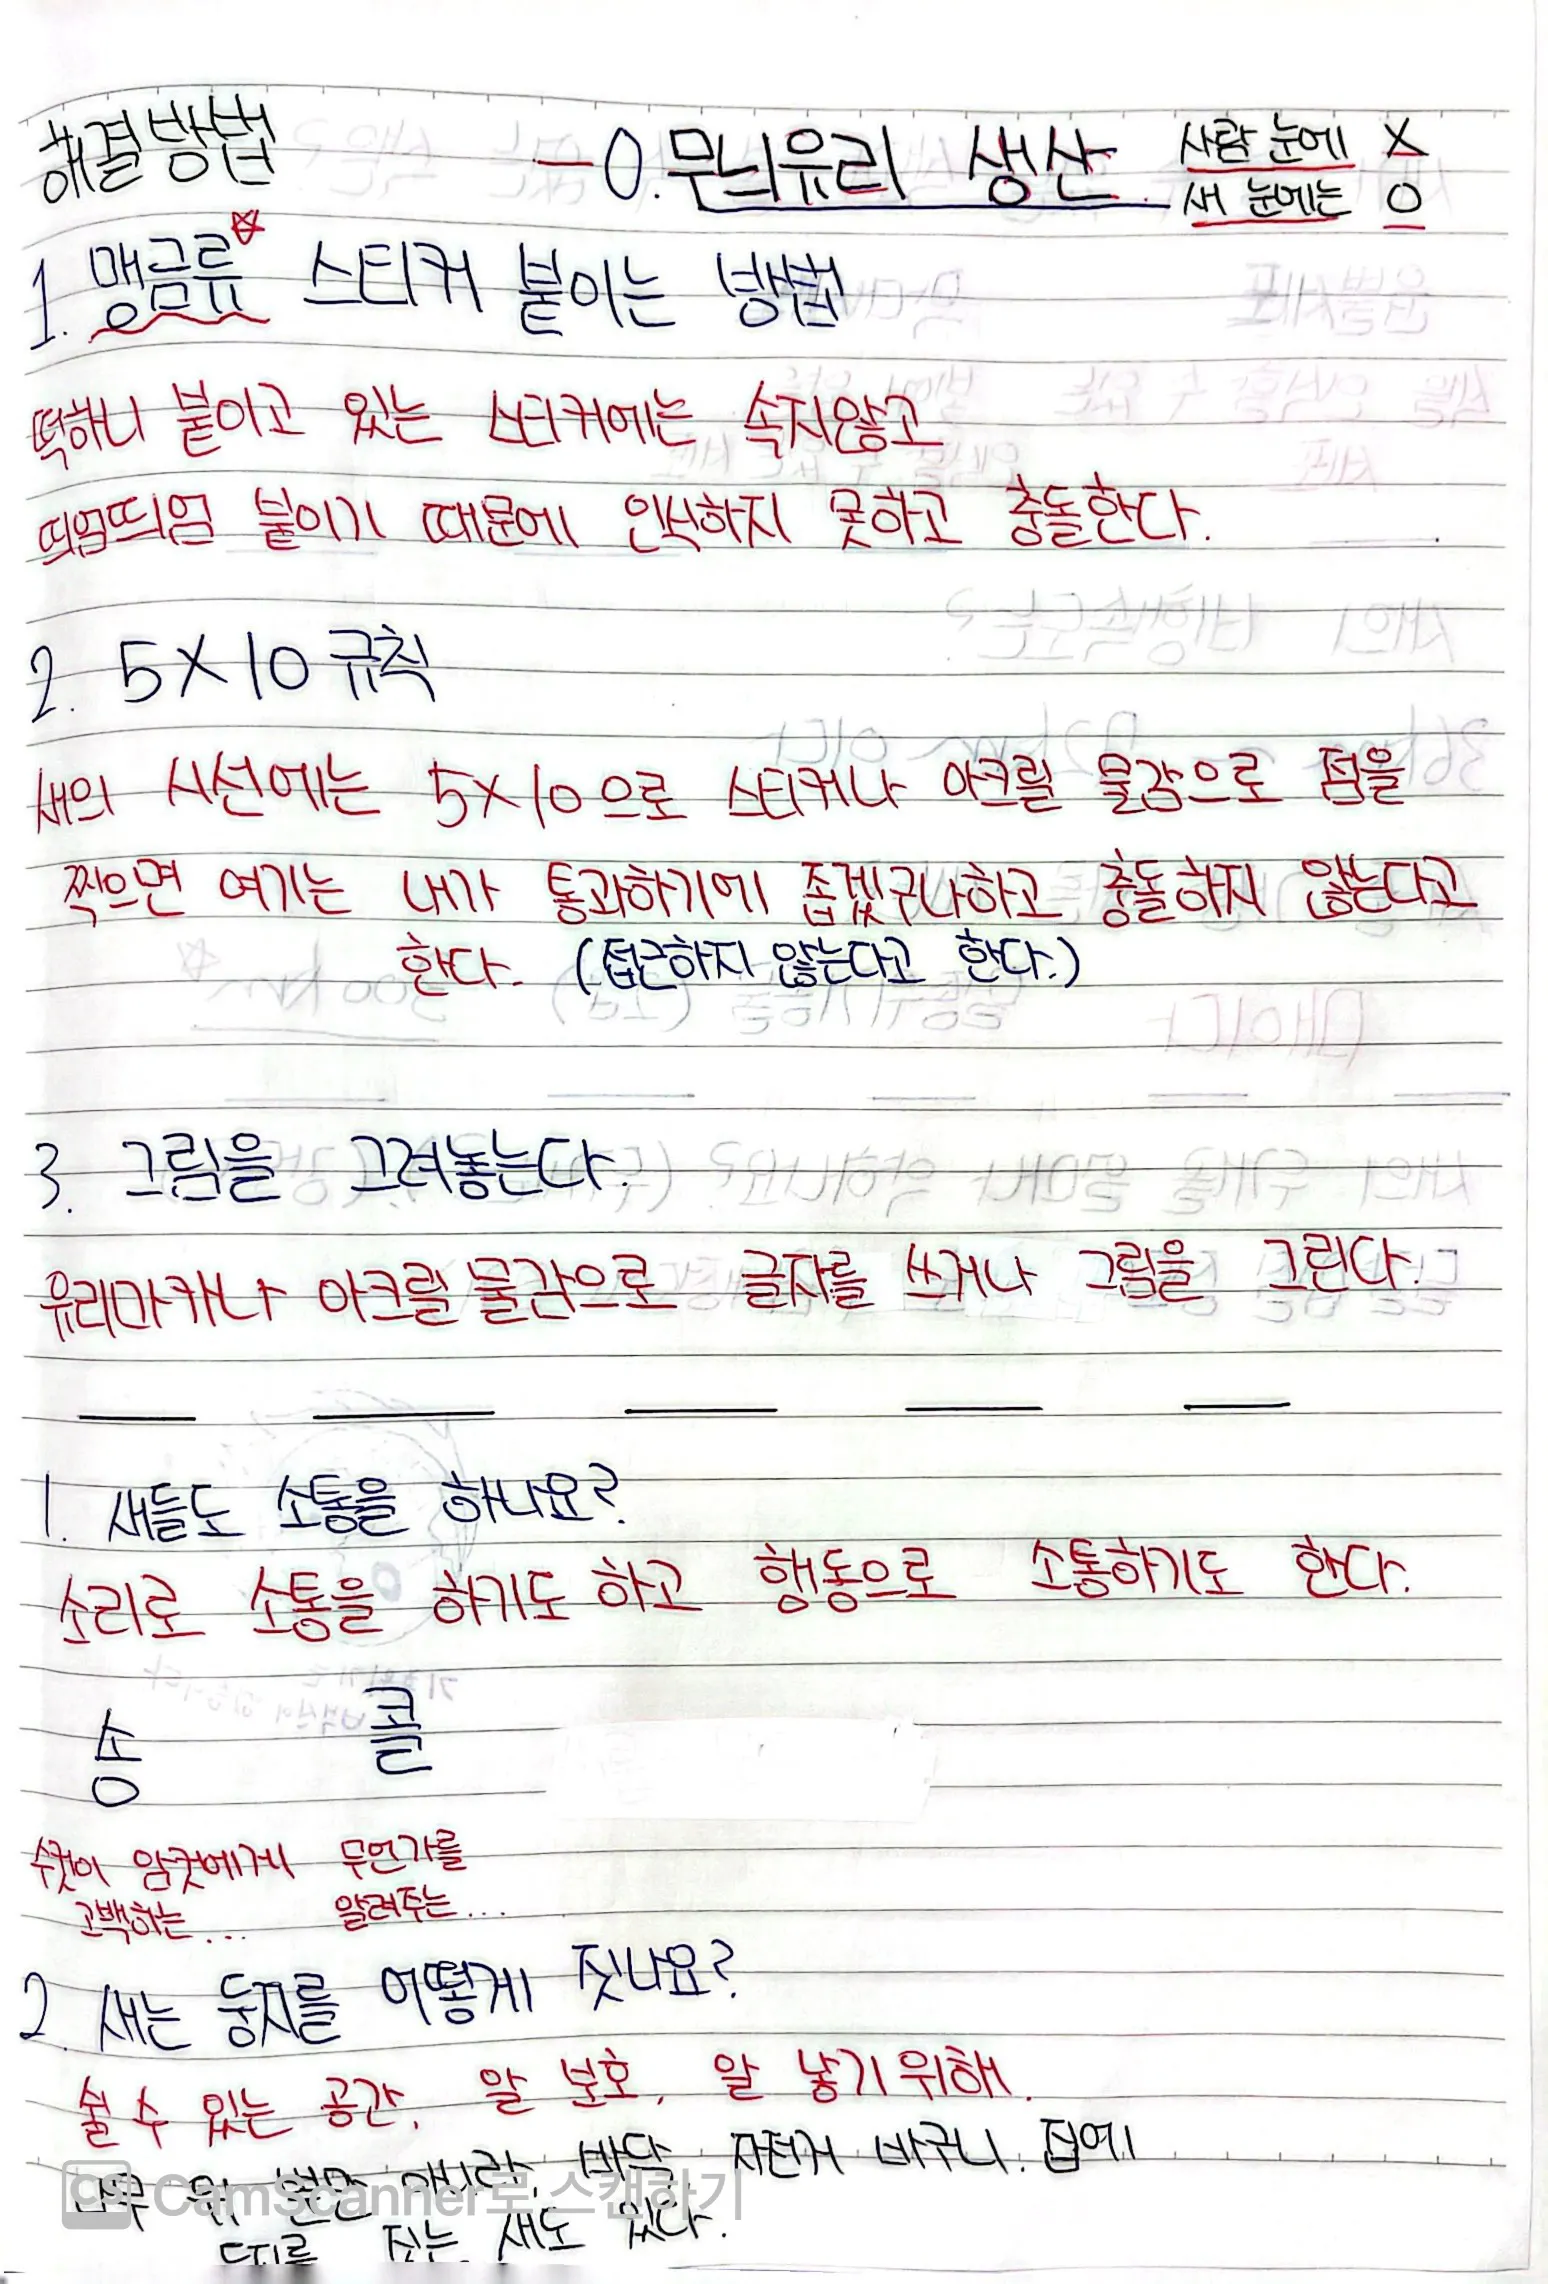 해결방법
0. 무늬유리 생산 사람 눈에 X
새 눈에는 O
1. 맹금류 스티커 붙이는 방법
떡하니 붙이고 있는 스티커에는 속지않고
띄엄띄엄 붙이기 때문에 인식하지 못하고 충돌한다.
2. 5X10 규칙
새의 시선에는 5X10으로 스티커나 아크릴 물감으로 점을
찍으면 여기는 내가 통과하기에 좁겠구나하고 충돌하지 않는다고
한다. (접근하지 않는다고 한다.)
3. 그림을 그려놓는다.
유리마카나 아크릴 물감으로 글자를 쓰거나 그림을 그린다.
1. 새들도 소통을 하나요?
소리로 소통을 하기도 하고 행동으로 소통하기도 한다.
송 콜
수컷이 암컷에게 무언가를
고백하는... 알려주는...
2. 새는 둥지를 어떻게 짓나요?
쉴 수 있는 공간, 알 분호, 알 낳기위해.
나무 위, 바닥, 자전거 바구니. 집에
둥지를 짓는 새도 있다.
CS CamScanner로 스캔하기